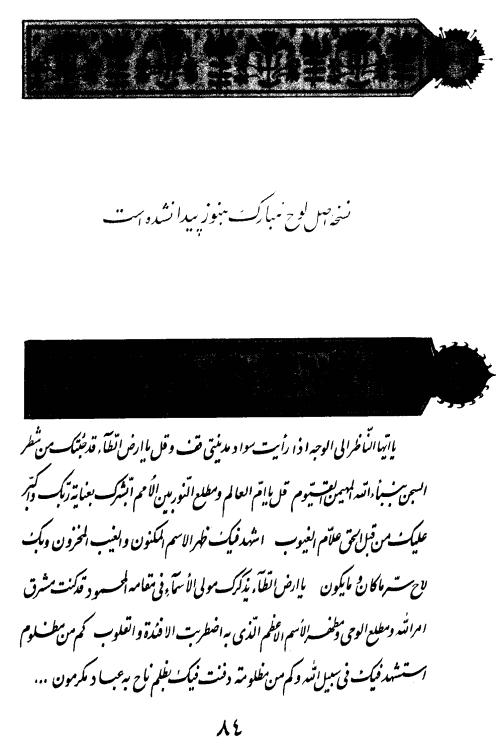 نسخهٔ اصل لوح مبارک هنوز پیدا نشده است
یا ایّها النّاظر الی الوجه اذا رأیت سواد مدینتی قف و قل یا ارض الطّآء قد جئتک من شطر
السجن بنبإ اللّه المهیمن القیّوم قل یا امّ العالم و مطلع النّور بین الأمم ابشّرک بعنایة ربّک و اکبّر
علیک من قبل الحقّ علّام الغیوب اشهد فیک ظهر الاسم المکنون و الغیب المخزون و بک
لاح سرّ ما کان و ما یکون یا ارض الطّآء یذکرک مولی الأسمآء فی مقامه المحمود قد کنت مشرق
امر اللّه و مطلع الوحی و مظهر الأسم الأعظم الّذی به اضطربت الافئدة و القلوب کم من مظلوم
استشهد فیک فی سبیل اللّه و کم من مظلومة دفنت فیک بظلم ناح به عباد مکرمون ...
٨٤